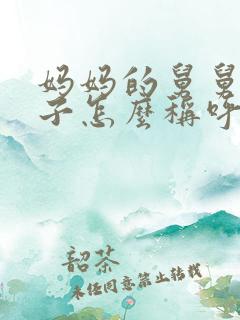 妈妈的舅舅
子怎麽稱呼
韶茶
未经同意禁止转载